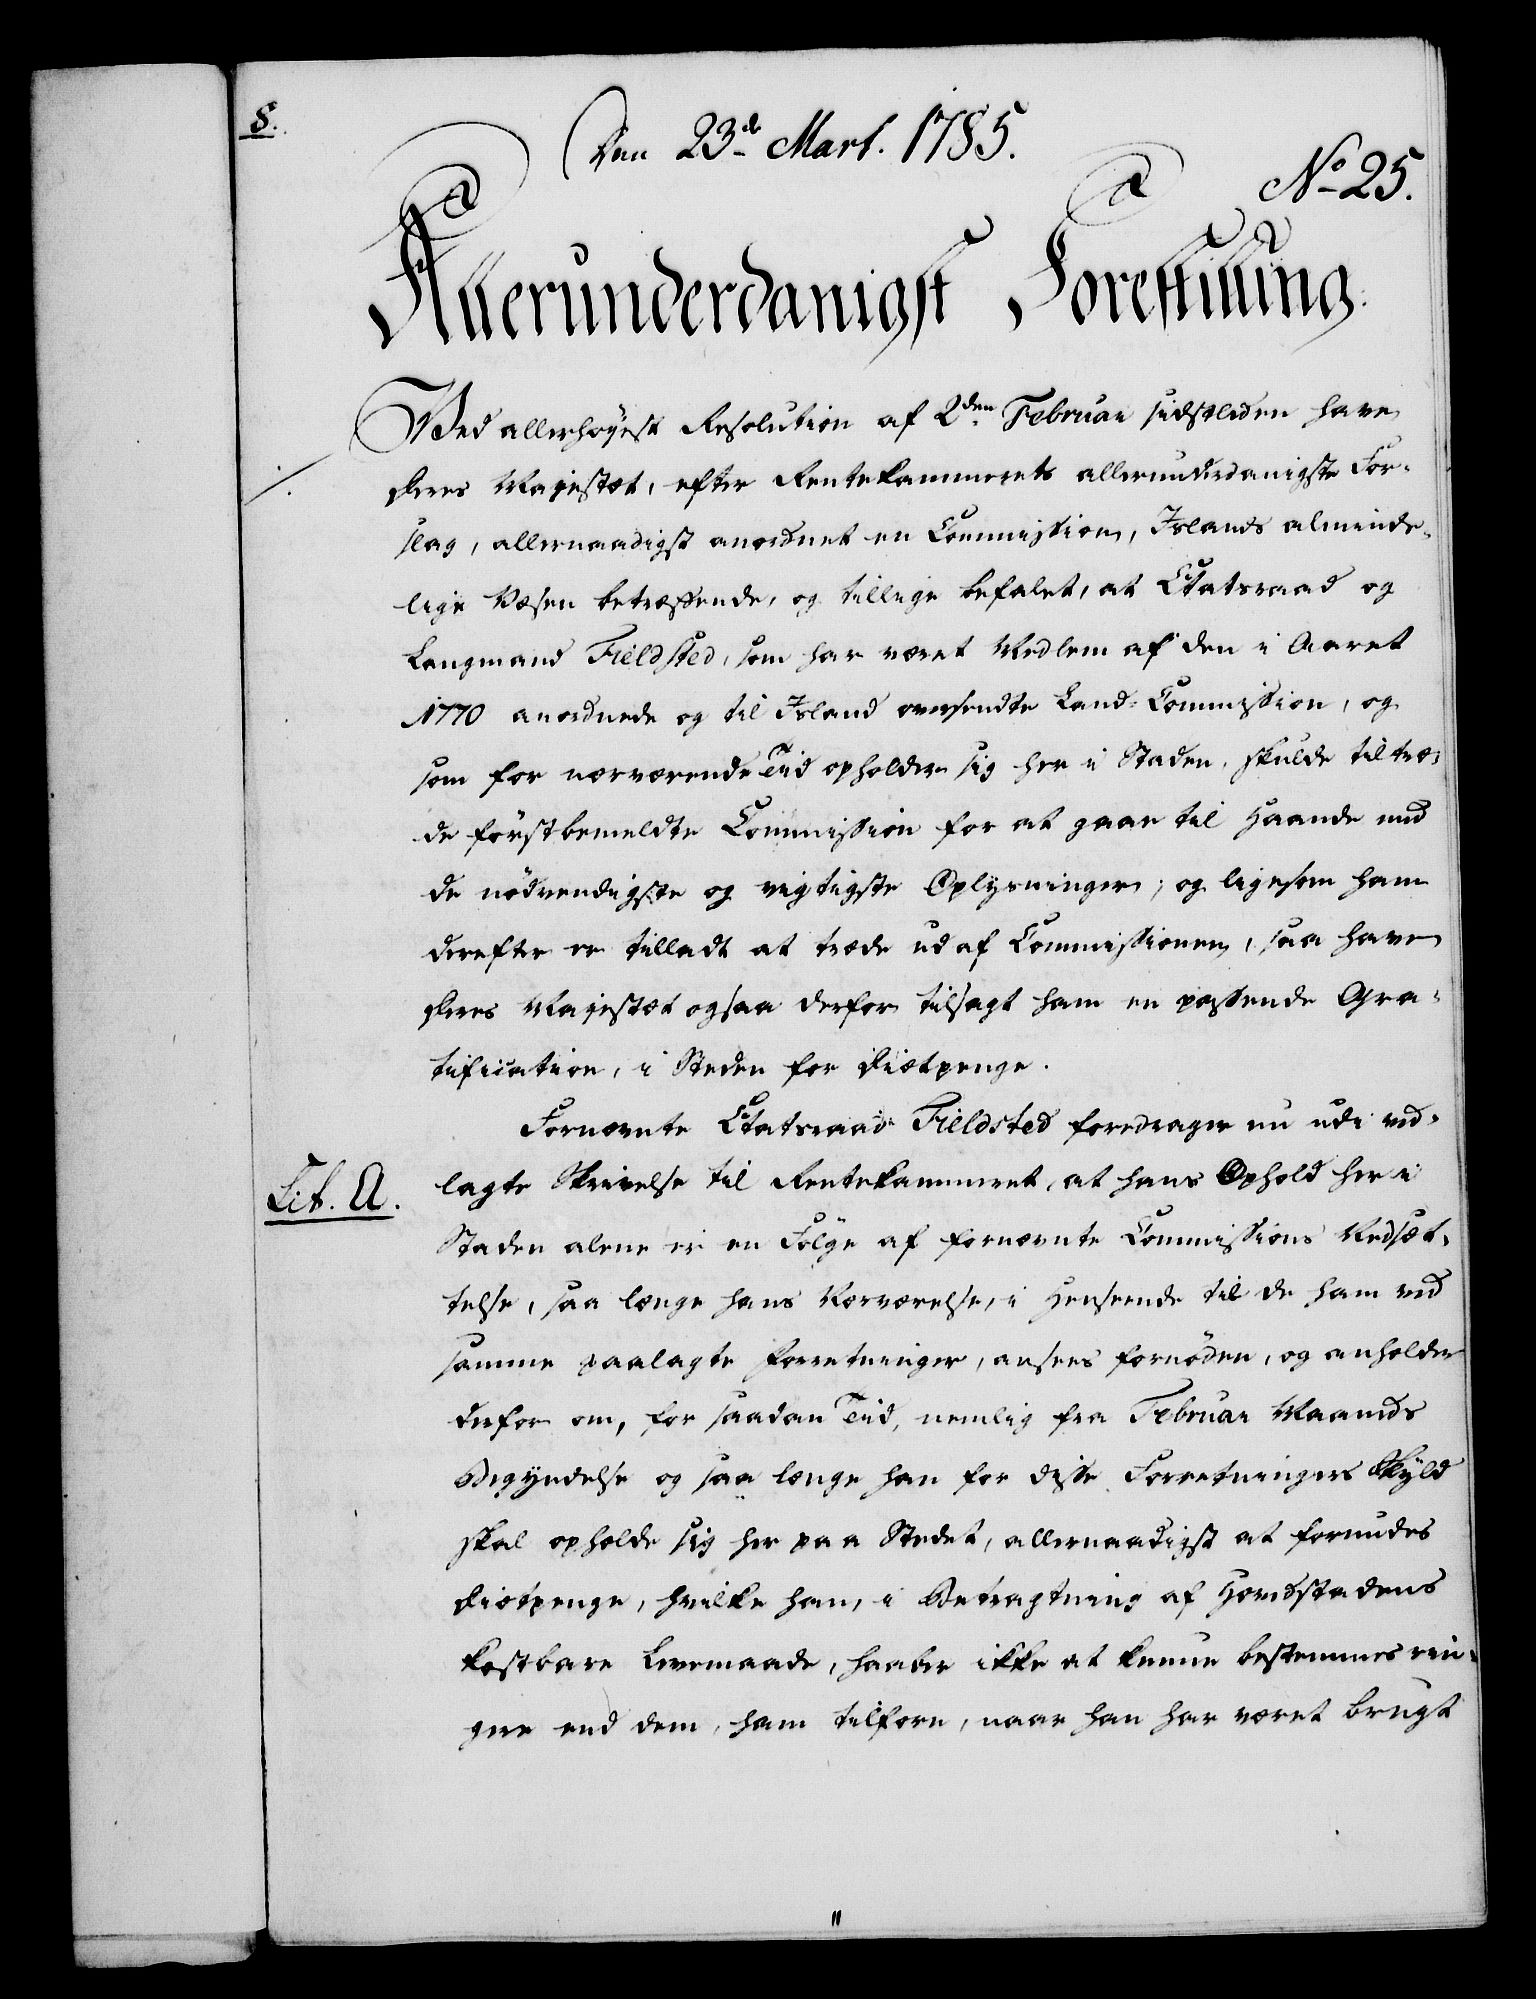 8.
Den 23de Mart. 1785.
No 25.
Allerunderdanigst Forestilling.
Ved allerhøyest Resolution af 2den Februar sidstleden have
Deres Majestæt, efter Rentekammerets allerunderdanigste For-
slag, allernaadigst anordnet en Commission, Islands alminde-
lige Væsen betræffende, og tillige befalet, at Etatsraad og
Laugmand Fieldsted, som har været Medlem af den i Aaret
1770 anordnede og til Island oversendte Land-Commission, og
som for nærværende Tiid opholder sig her i Staden, skulde tiltræ-
de førstbemeldte Commission for at gaae til Haande med
de nødvendigste og vigtigste Oplysninger; og ligesom ham
derefter er tilladt at træde ud af Commissionen, saa have
Deres Majestæt ogsaa derfor tilsagt ham en passende Gra-
tification, i Steden for Diætpenge.
Fornævnte Etatsraad Fieldsted foredrager nu udi ved-
Lit. A.
lagte Skrivelse til Rentekammeret, at hans Ophold her i
Staden alene er en Følge af fornævnte Commissions Nedsæt-
telse, saa længe hans Nærværelse, i Henseende til de ham ved
samme paalagte Forretninger, ansees fornøden, og anholder
derfor om, for saadan Tiid, nemlig fra Februar Maaneds
Begyndelse og saa længe han for disse Forretningers Skyld
skal opholde sig her paa Stedet, allernaadigst at forundes
Diætpenge, hvilke han, i Betragtning af Hovedstadens
kostbare Levemaade, haaber ikke at kunne bestemmes rin-
gere end dem, ham tilforn, naar han har været brugt